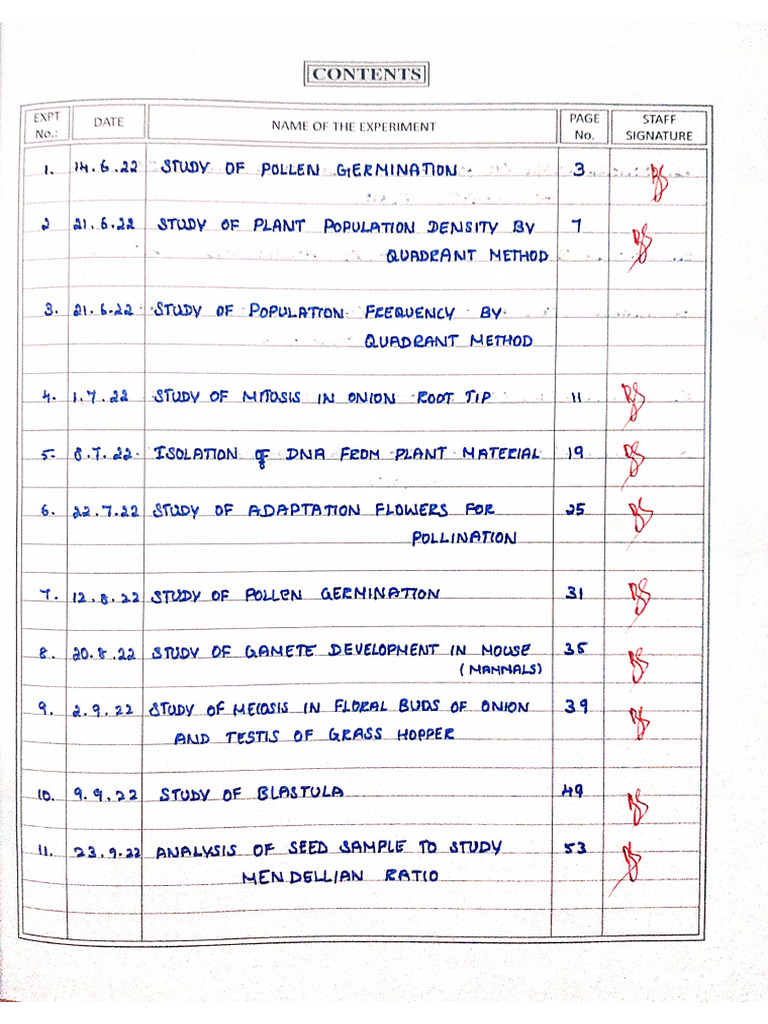 CONTENTS
EXPT No.: DATE NAME OF THE EXPERIMENT PAGE No. STAFF SIGNATURE
1. 14.6.22 STUDY OF POLLEN GERMINATION 3
2 21.6.22 STUDY OF PLANT POPULATION DENSITY BY 7
QUADRANT METHOD
3. 21.6.22 STUDY OF POPULATION FREQUENCY BY
QUADRANT METHOD
4. 1.7.22 STUDY OF MITOSIS IN ONION ROOT TIP 11
5. 8.7.22 ISOLATION OF DNA FROM PLANT MATERIAL 19
6. 22.7.22 STUDY OF ADAPTATION FLOWERS FOR 25
POLLINATION
7. 12.8.22 STUDY OF POLLEN GERMINATION 31
8. 20.8.22 STUDY OF GAMETE DEVELOPMENT IN MOUSE 35
(MAMMALS)
9. 2.9.22 STUDY OF MEIOSIS IN FLORAL BUDS OF ONION 39
AND TESTIS OF GRASS HOPPER
10. 9.9.22 STUDY OF BLASTULA 49
11. 23.9.22 ANALYSIS OF SEED SAMPLE TO STUDY 53
MENDELLIAN RATIO